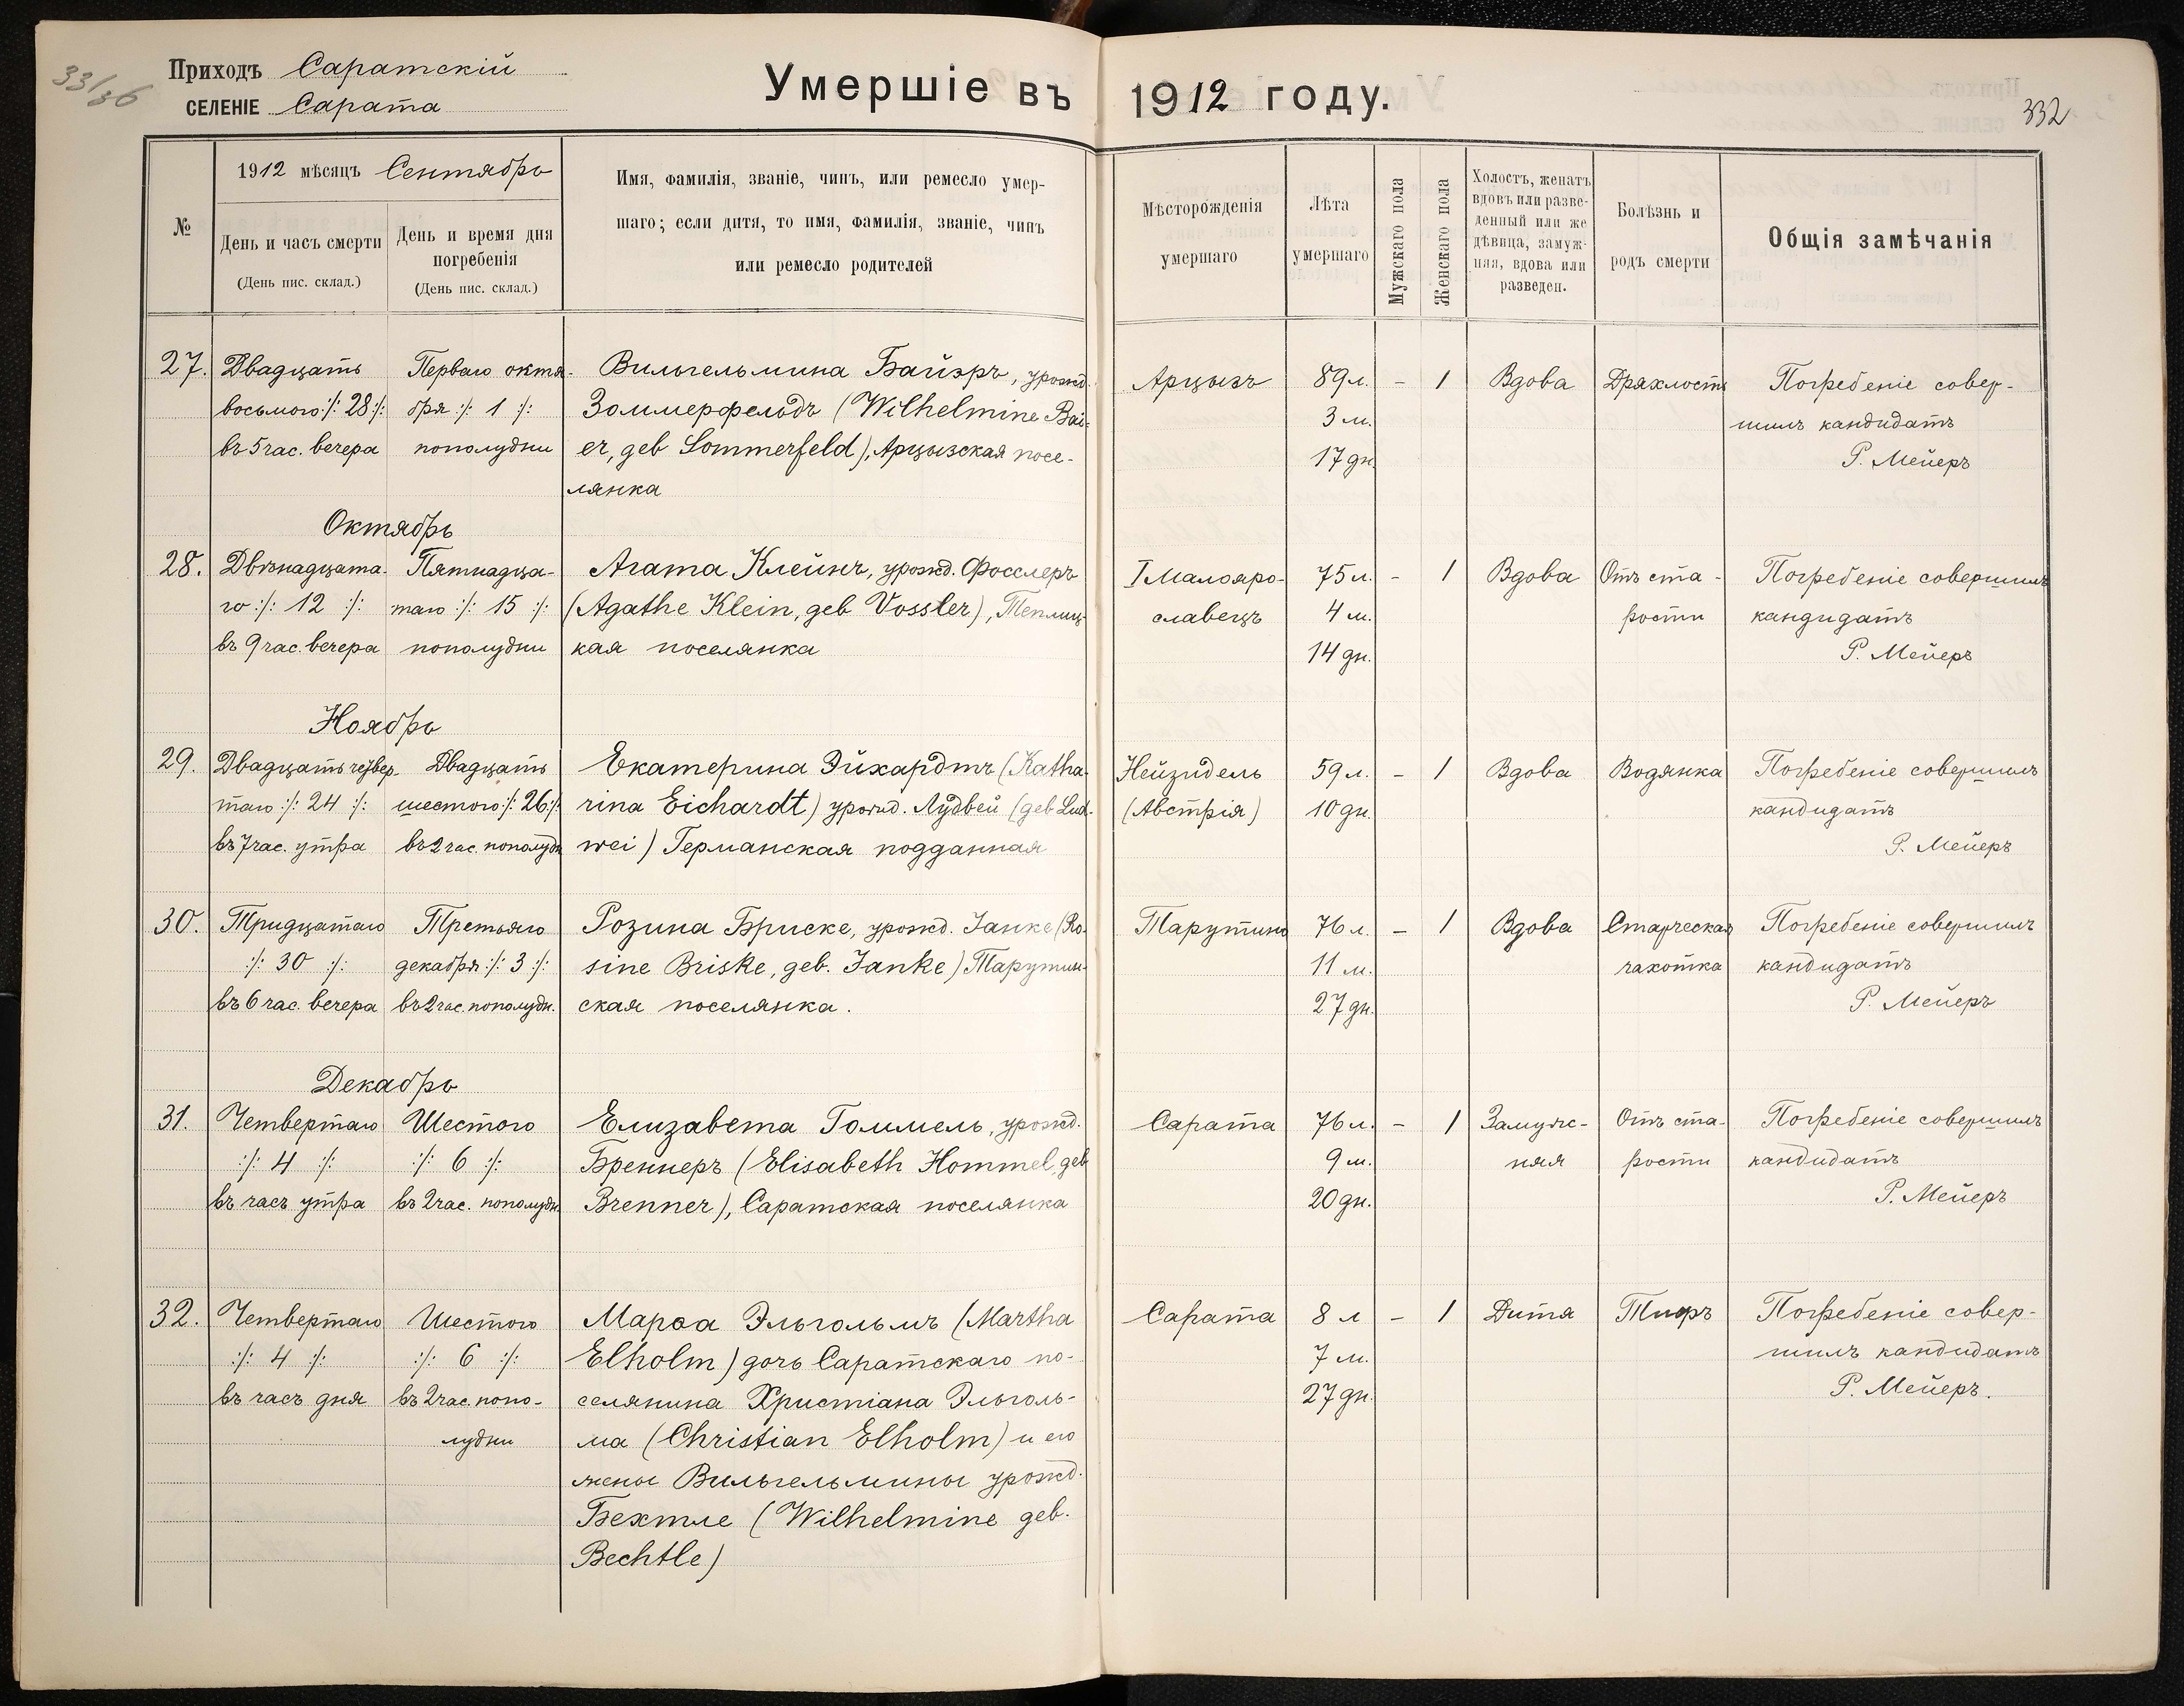 33/36
Приходъ Саратскій
СЕЛЕНІЕ Сарата
Умершіе въ 1912 году.
332
№
1912 мѣсяцъ Сентябрь
День и часъ смерти
(День пис. склад.)
День и время дня
погребенія
(День пис. склад.)
Имя, фамилія, званіе, чинъ, или ремесло умер-
шаго; если дитя, то имя, фамилія, званіе, чинъ
или ремесло родителей
Мѣсторожденія
умершаго
Лѣта
умершаго
Мужскаго пола
Женскаго пола
Холостъ, женатъ
вдовъ или разве-
денный или же
дѣвица, замуж-
няя, вдова или
разведен.
Болѣзнь и
родъ смерти
Общія замѣчанія
27. Двадцать Перваго октя- Вильгельмина Байэръ, урожд. Арцызъ 89 л. - 1 Вдова Дряхлость Погребеніе совер-
восьмого :/: 28 :/: бря :/: 1 :/: Зоммерфельдъ (Wilhelmine Bai- 3 м. шилъ кандидатъ
въ 5 час. вечера пополудни er, geb Sommerfeld), Арцызская посе- 17 дн. Р. Мейеръ
лянка
Октябрь
28. Двѣнадцата- Пятнадца- Агата Клейнъ, урожд. Фосслеръ I Малояро- 75 л. - 1 Вдова Отъ ста- Погребеніе совершилъ
го :/: 12 :/: таго :/: 15 :/: (Agathe Klein, geb Vossler), Теплиц- славецъ 4 м. рости кандидатъ
въ 9 час. вечера пополудни кая поселянка 14 дн. Р. Мейеръ
Ноябрь
29. Двадцать четвер- Двадцать Екатерина Эйхардтъ (Katha- Нейзидель 59 л. - 1 Вдова Водянка Погребеніе совершилъ
таго :/: 24 :/: шестого :/: 26 :/: rina Eichardt) урожд. Лудвей (geb Lud- (Австрія) 10 дн. кандидатъ
въ 7 час. утра въ 2 час. пополудн wei) Германская подданная Р. Мейеръ
30. Тридцатаго Третьяго Розина Бриске, урожд. Іанке (Ro- Тарутино 76 л. - 1 Вдова Старческая Погребеніе совершилъ
:/: 30 :/: декабря :/: 3 :/: sine Briske, geb. Janke) Тарутин- 11 м. чахотка кандидатъ
въ 6 час. вечера въ 2 час. пополудн. ская поселянка. 27 дн. Р. Мейеръ
Декабрь
31. Четвертаго Шестого Елизавета Гоммель, урожд. Сарата 76 л. - 1 Замуж- Отъ ста- Погребеніе совершилъ
:/: 4 :/: :/: 6 :/: Бреннеръ (Elisabeth Hommel, geb 9 м. няя рости кандидатъ
въ часъ утра въ 2 час. пополудн. Brenner), Саратская поселянка 20 дн. Р. Мейеръ
32. Четвертаго Шестого Марѳа Эльгольмъ (Martha Сарата 8 л - 1 Дитя Тифъ Погребеніе совер-
:/: 4 :/: :/: 6 :/: Elholm) дочь Саратскаго по- 7 м. шилъ кандидатъ
въ часъ дня въ 2 час. попо- селянина Христіана Эльголь- 27 дн. Р. Мейеръ.
лудни ма (Christian Elholm) и его
жены Вильгельмины урожд.
Бехтле (Wilhelmine geb.
Bechtle)